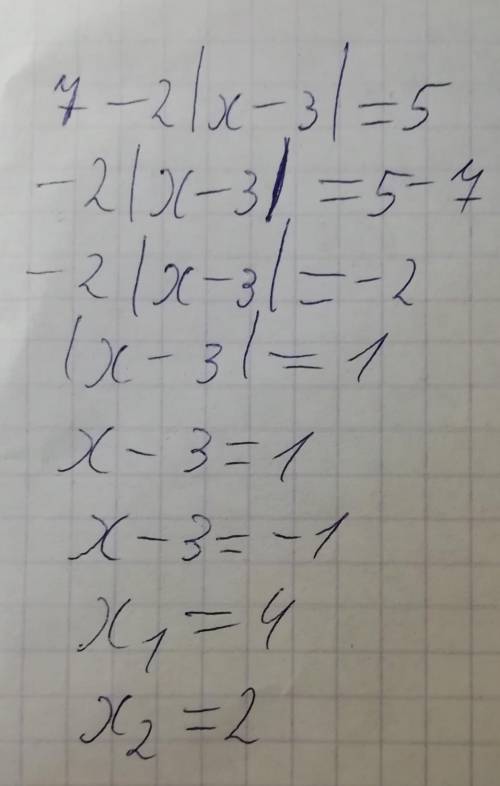 7 - 2|x - 3| = 5
-2|x - 3| = 5 - 7
-2|x - 3| = -2
|x - 3| = 1
x - 3 = 1
x - 3 = -1
x₁ = 4
x₂ = 2